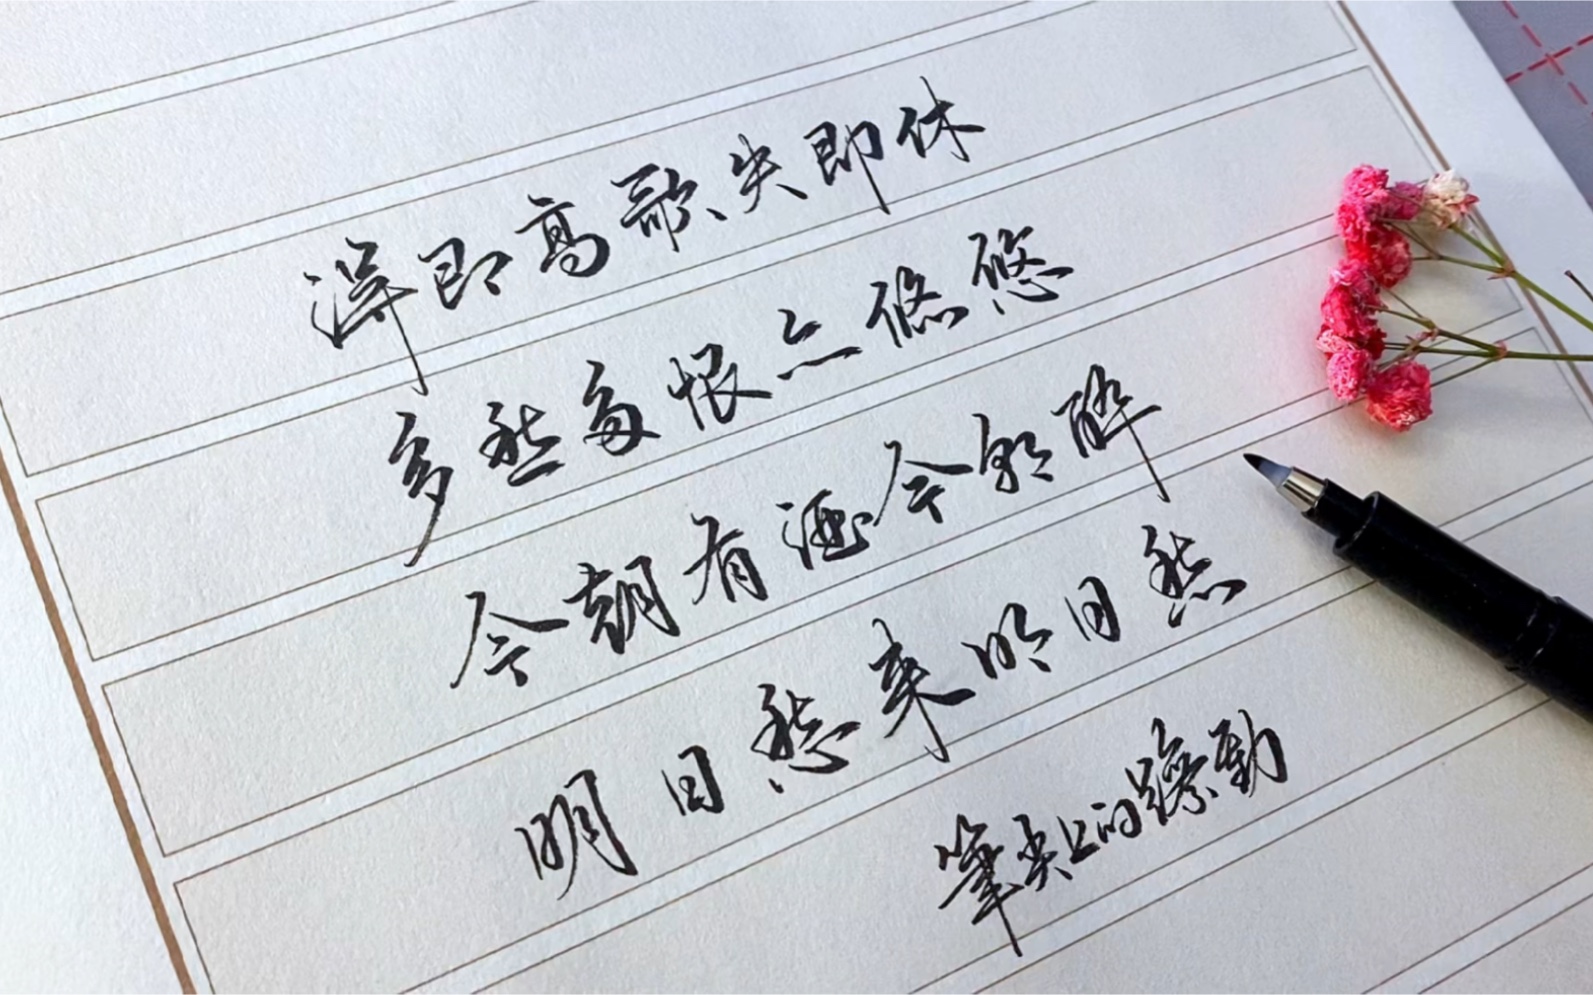 得即高歌失即休
多愁多恨亦悠悠
今朝有酒今朝醉
明日愁来明日愁
筆尖上的躁動